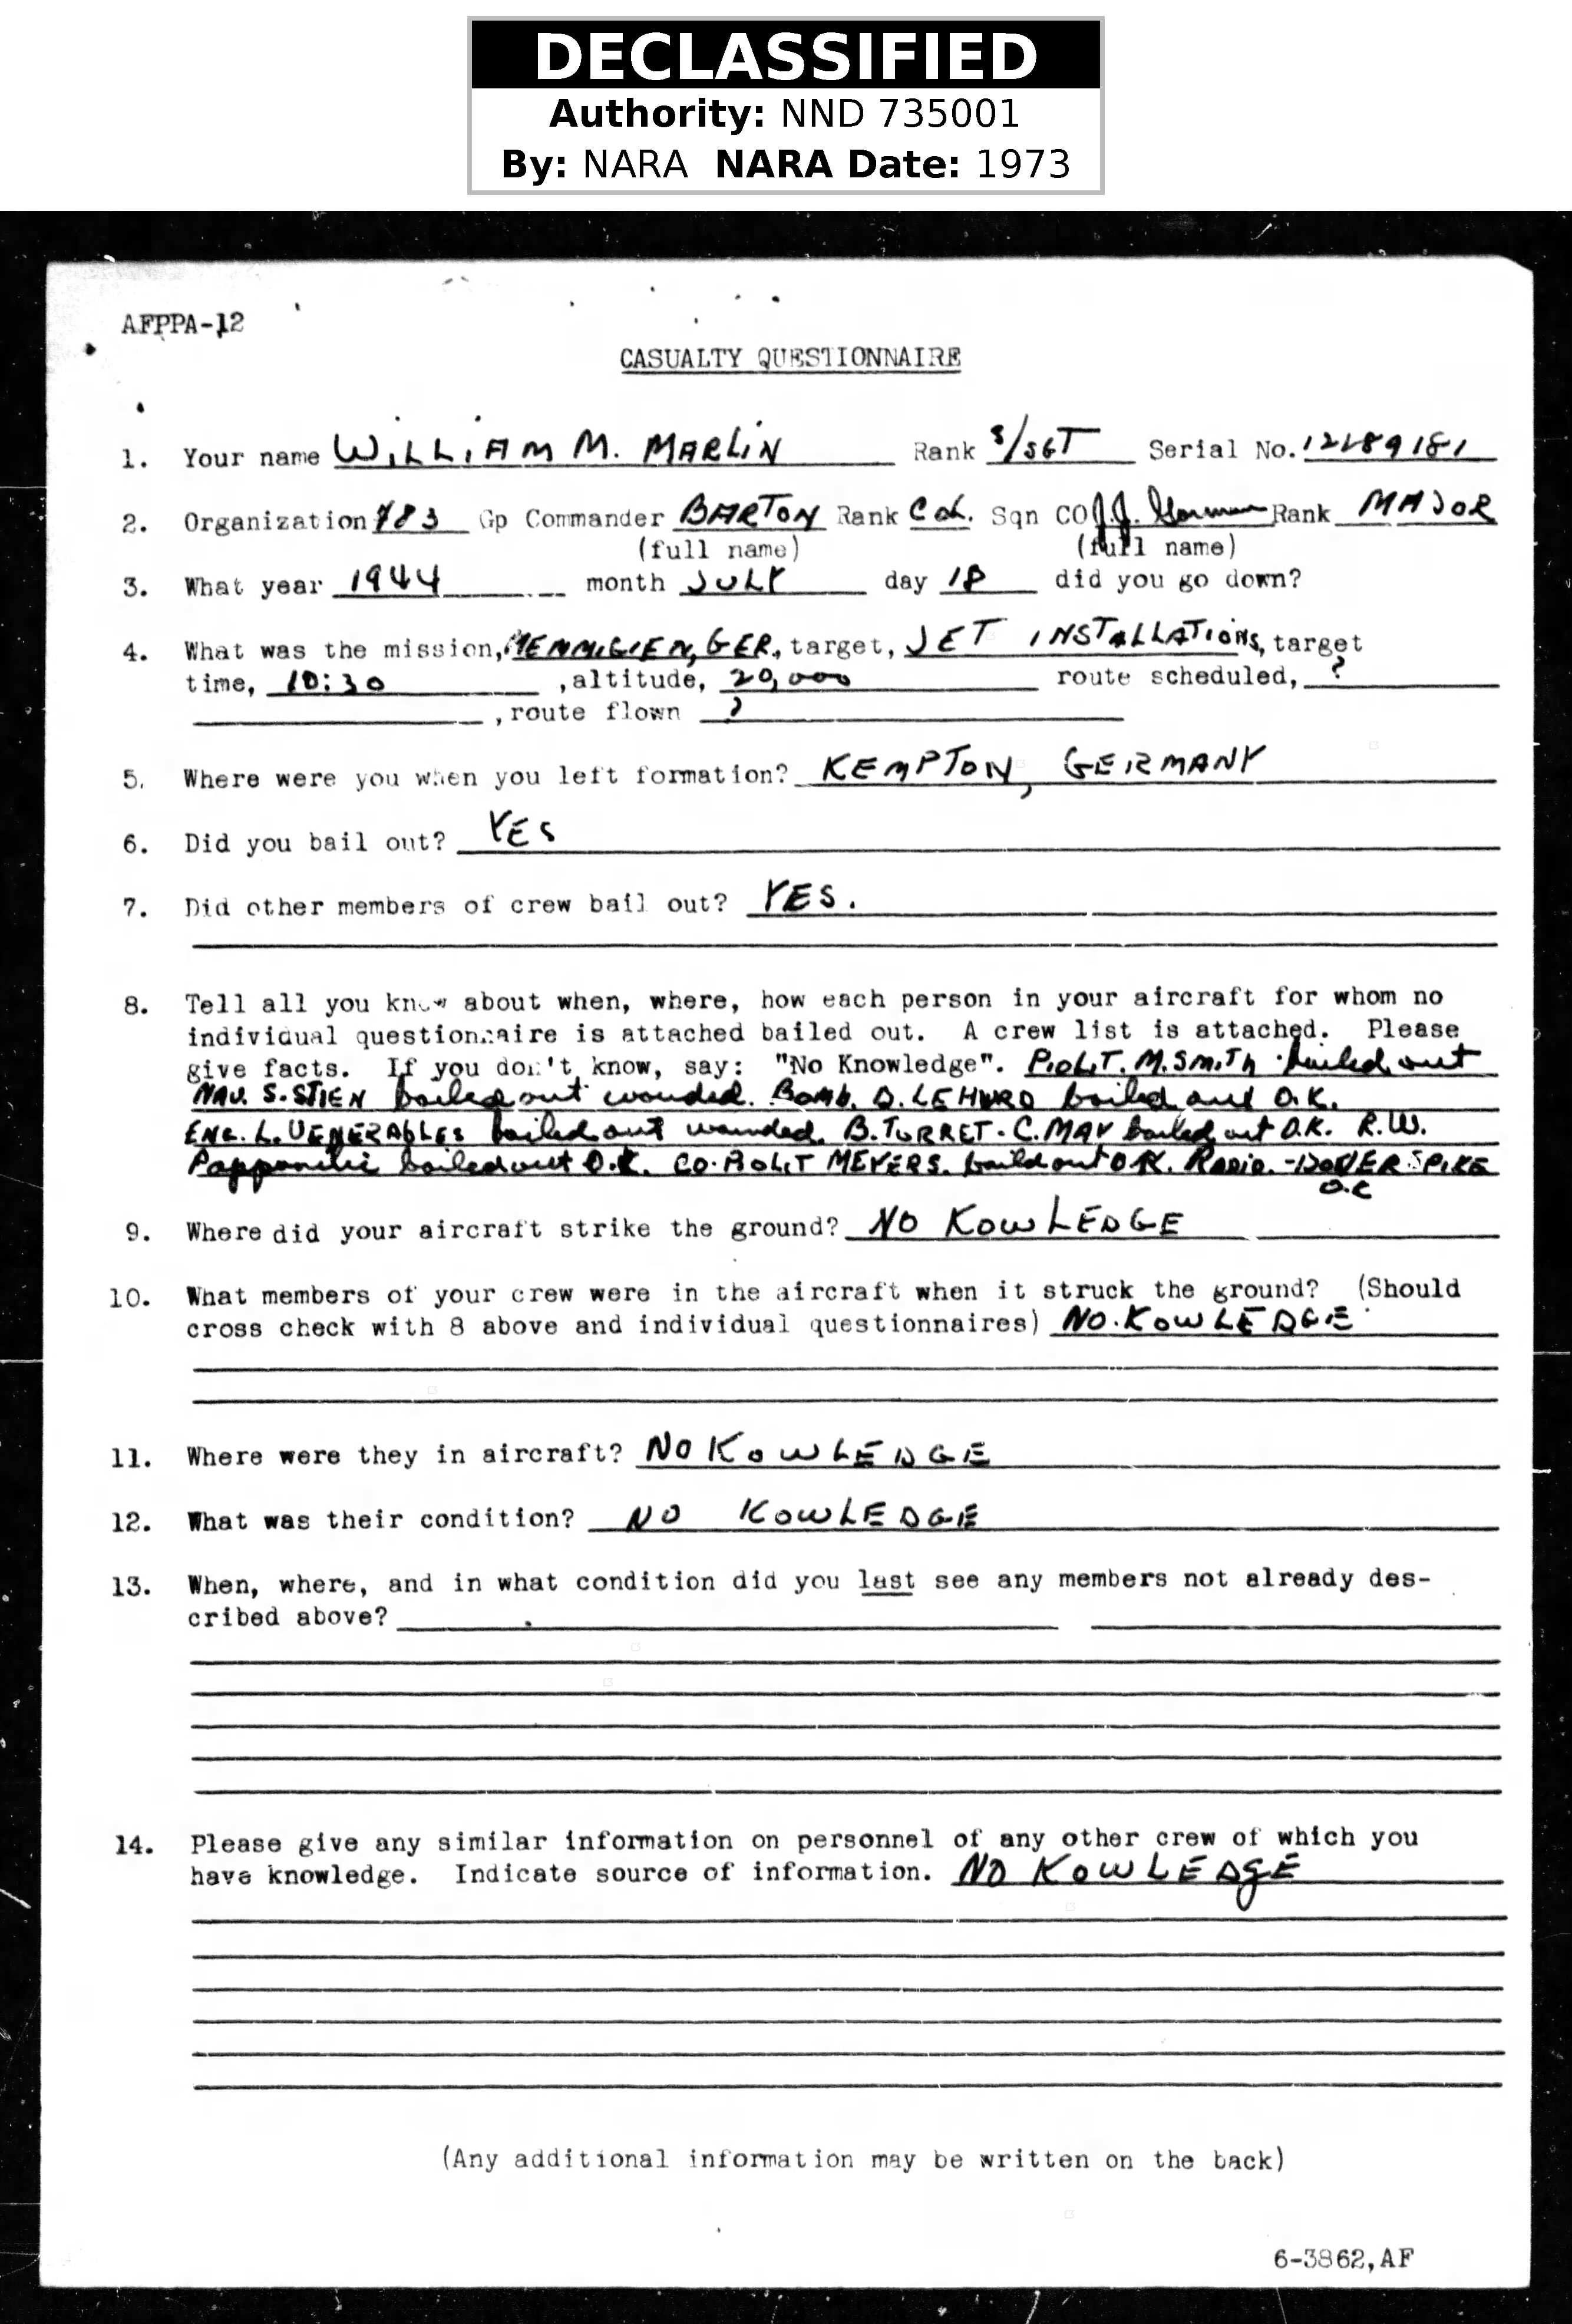 DECLASSIFIED
Authority: NND 735001
By: NARA NARA Date: 1973
AFPPA-12
CASUALTY QUESTIONNAIRE
1. Your name WiLLiAM M. MARLiN Rank S/SGT Serial No. 12289181
2. Organization 783 Gp Commander BARTON Rank Col. Sqn CO J.J. Rank MAJOR
(full name) (full name)
3. What year 1944 month JULY day 18 did you go down?
4. What was the mission, GER., target, JET INSTALLATIONS, target
time, 10:30 , altitude, 20,000 route scheduled, ?
, route flown ?
5. Where were you when you left formation? KEMPTON, GERMANY
6. Did you bail out? YES
7. Did other members of crew bail out? YES.
8. Tell all you know about when, where, how each person in your aircraft for whom no
individual questionnaire is attached bailed out. A crew list is attached. Please
give facts. If you don't know, say: "No Knowledge". PiOLiT. M. SMiTh bailed out
NAV. S. STIEN bailed out wounded. Bomb. D. LEHURD bailed out O.K.
ENG. L. VENERABLES bailed out wounded. B. TURRET. C. MAY bailed out O.K. R.W.
bailed out O.K. CO. PiOLiT MEYERS. bailed out O.K. Radio. - DOVERSPIKE
O.K
9. Where did your aircraft strike the ground? NO KOWLEDGE
10. What members of your crew were in the aircraft when it struck the ground? (Should
cross check with 8 above and individual questionnaires) NO. KOWLEDGE
11. Where were they in aircraft? NO KOWLEDGE
12. What was their condition? NO KOWLEDGE
13. When, where, and in what condition did you last see any members not already des-
cribed above?
14. Please give any similar information on personnel of any other crew of which you
have knowledge. Indicate source of information. NO KOWLEDgE
(Any additional information may be written on the back)
6-3862,AF